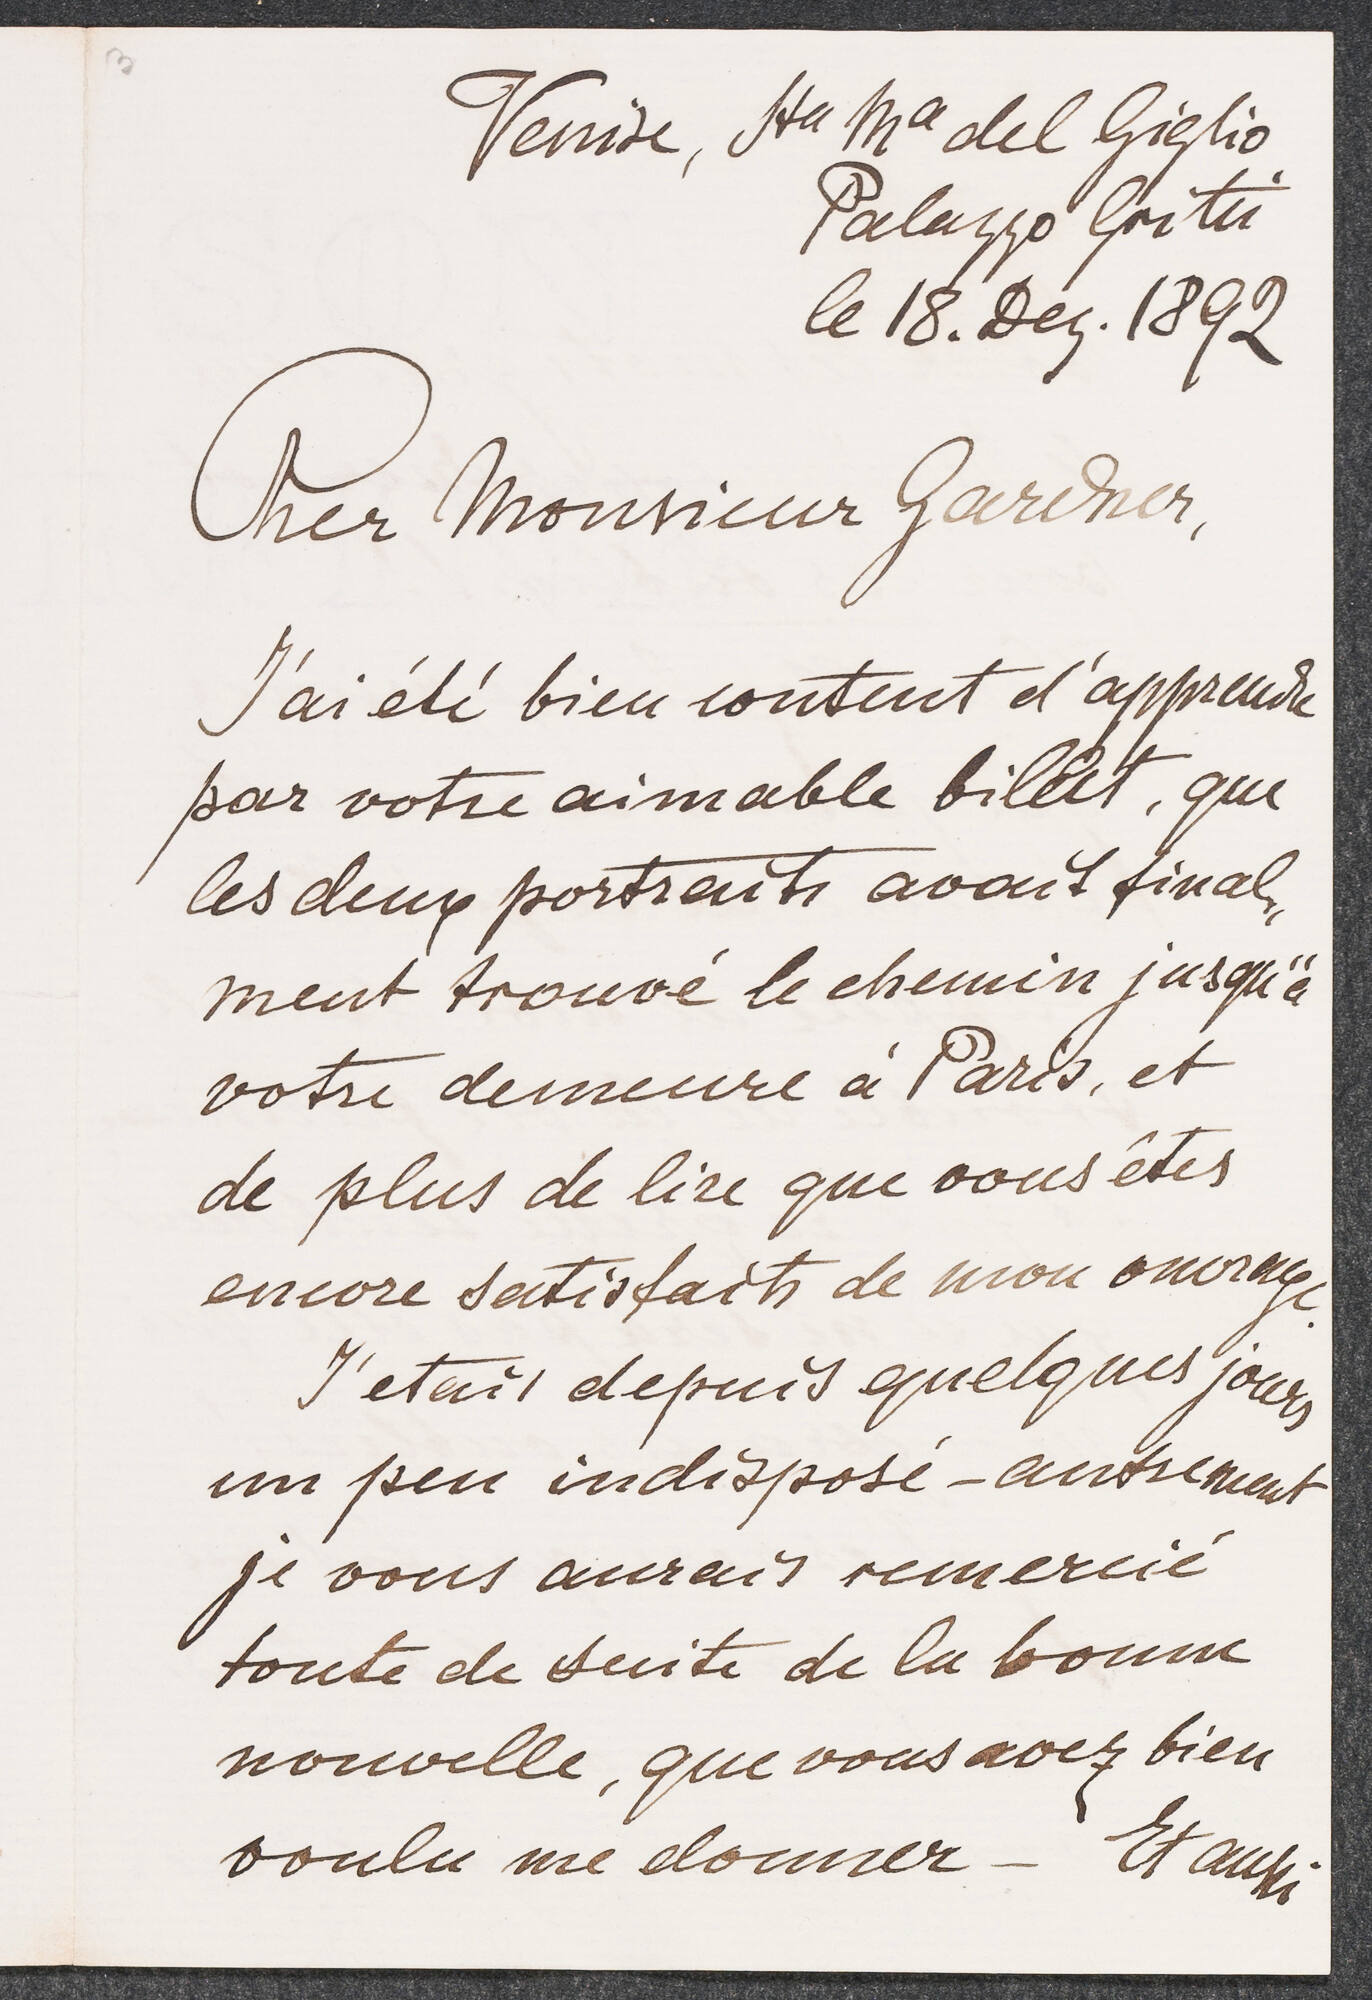 Venise, Sta Ma del Giglio
Palazzo Gritti
le 18. Dez. 1892
Cher Monsieur Gardner,
J'ai été bien content d'apprendre
par votre aimable billet, que
les deux portraits avait final„
ment trouvé le chemin jusqu'à
votre demeure à Paris, et
de plus de lire que vous êtes
encore satisfaits de mon ouvrage.
J'etais depuis quelques jours
un peu indisposé – autrement
je vous aurais remercié
toute de suite de la bonne
nouvelle, que vous avez bien
voulu me donner – Et aussi